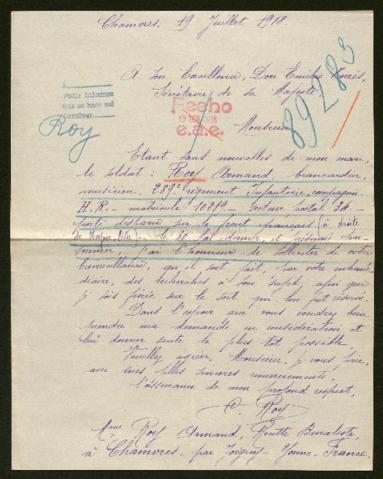 Chamvres, 19 Juillet 1918.
A Son Excellence, Don Emilio
Secrétaire de Sa Majesté,
Pedir informes
que se hace
Roy
Hecho
1918
e.a.e.
89283
Monsieur
Etant sans nouvelles de mon mari,
le soldat : Roy Armand, brancardier,
musicien, 289e régiment Infanterie, compagnie
H.R. matricule 10219. Secteur postal
disparu sur le front français (à droite
de) le dernier et présumé
prisonnier j'ai l'honneur de solliciter de votre
bienveillance, qu'il soit fait, par votre intermé
diaire, des recherches à son sujet, afin que
je sois fixée sur le sort qui lui est réservé.
Dans l'espoir que vous voudrez bien
prendre ma demande en considération et
lui donner suite le plus tôt possible,
Veuillez agréer, Monsieur, je vous prie,
avec mes plus sincères remerciements,
l'assurance de mon profond respect,
Roy
Mme Roy Armand, Route
à Chamvres, par Joigny - Yonne - France.